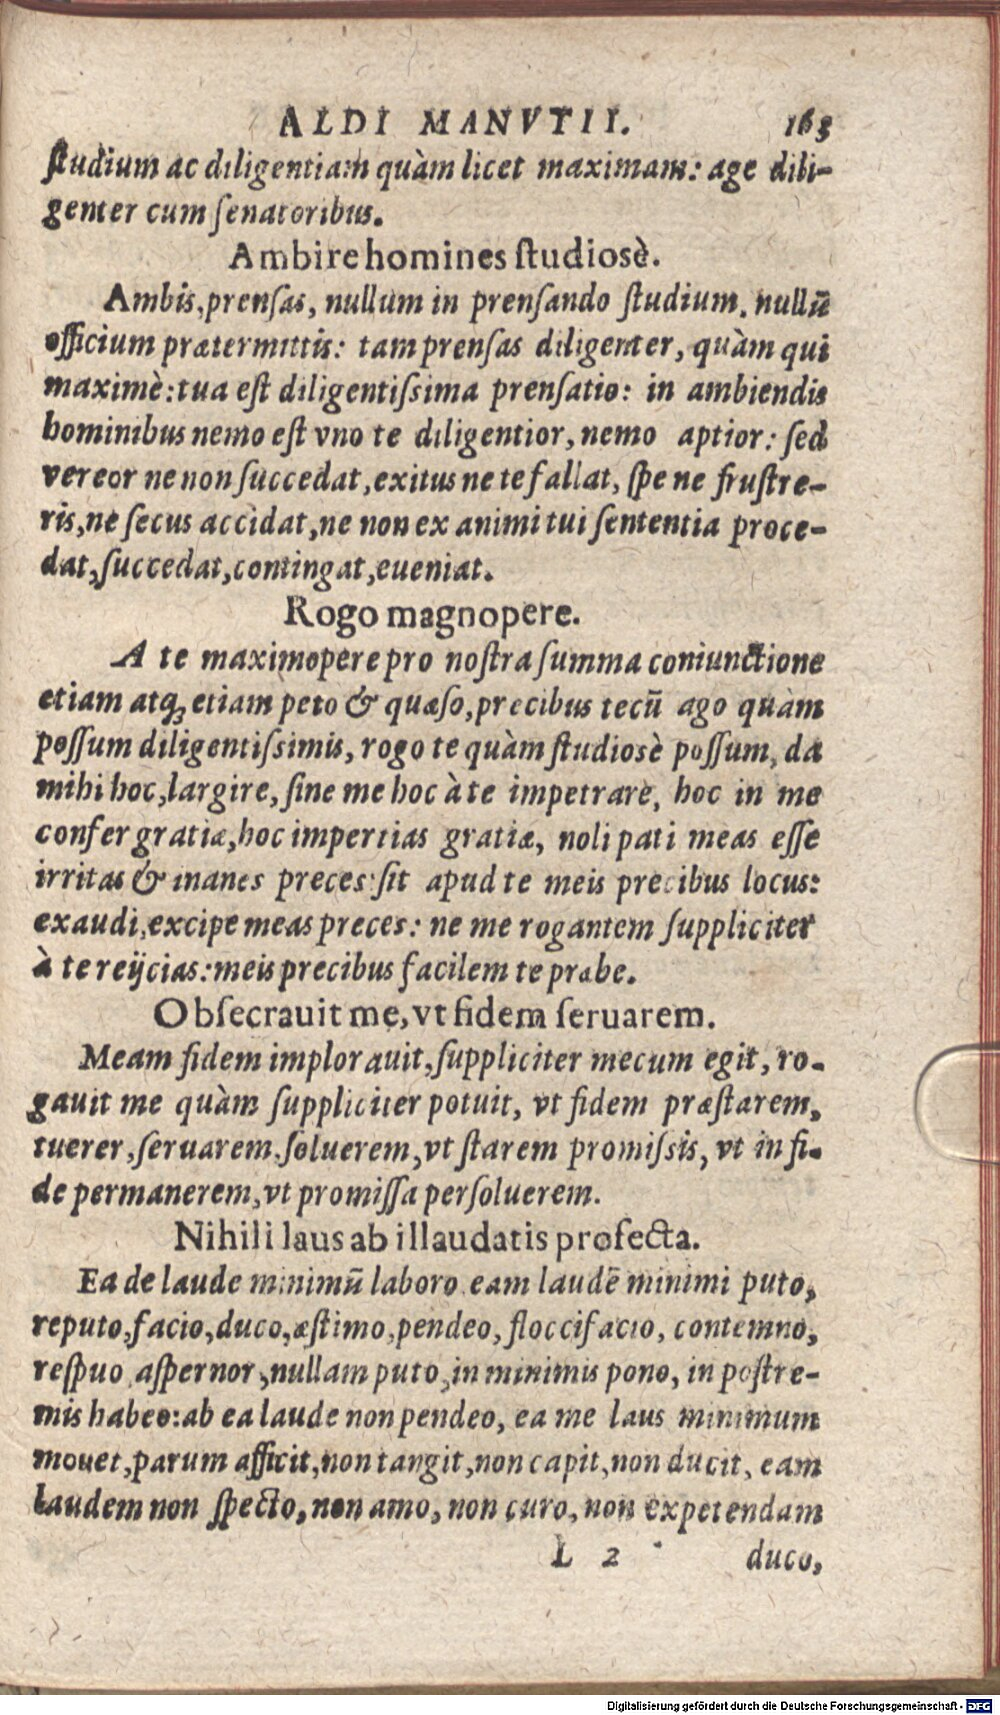 ALDI MANVTII. 163
ſtudium ac diligentiam quàm licet maximam: age dili-
genter cum ſenatoribus.
Ambire homines ſtudiosè.
Ambis, prenſas, nullum in prenſando ſtudium, nullū
officium prætermittis: tam prenſas diligenter, quàm qui
maximè: tua eſt diligentiſsima prenſatio: in ambiendis
hominibus nemo eſt vno te diligentior, nemo aptior: ſed
vereor ne non ſuccedat, exitus ne te fallat, ſpe ne fruſtre-
ris, ne ſecus accidat, ne non ex animi tui ſententia proce-
dat, ſuccedat, contingat, eueniat.
Rogo magnopere.
A te maximopere pro noſtra ſumma coniunctione
etiam atq; etiam peto & quæſo, precibus tecū ago quàm
poſſum diligentiſsimis, rogo te quàm ſtudiosè poſſum, da
mihi hoc, largire, ſine me hoc à te impetrare, hoc in me
confer gratiæ, hoc impertias gratiæ, noli pati meas eſſe
irritas & inanes preces: ſit apud te meis precibus locus:
exaudi, excipe meas preces: ne me rogantem ſuppliciter
à te reijcias: meis precibus facilem te præbe.
Obſecrauit me, vt fidem ſeruarem.
Meam fidem implorauit, ſuppliciter mecum egit, ro-
gauit me quàm ſuppliciter potuit, vt fidem præſtarem,
tuerer, ſeruarem, ſoluerem, vt ſtarem promiſsis, vt in fi-
de permanerem, vt promiſſa perſoluerem.
Nihili laus ab illaudatis profecta.
Ea de laude minimū laboro eam laudē minimi puto,
reputo, facio, duco, æſtimo, pendeo, floccifacio, contemno,
reſpuo aſpernor, nullam puto, in minimis pono, in poſtre-
mis habeo: ab ea laude non pendeo, ea me laus minimum
mouet, parum afficit, non tangit, non capit, non ducit, eam
laudem non ſpecto, non amo, non curo, non expetendam
L 2 duco,
Digitalisierung gefördert durch die Deutsche Forschungsgemeinschaft - DFG